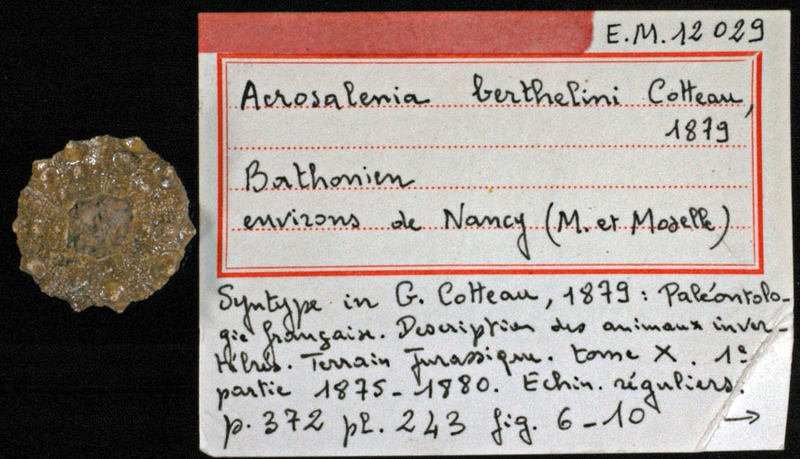 E.M. 12 029
Acrosalenia berthelini Cotteau,
1879
Bathonien
environs de Nancy (M. et Moselle)
Syntype in G. Cotteau, 1879 : Paléontolo-
gie française. Description des animaux inver-
tébrés. Terrain Jurassique. tome X. 1e
partie 1875-1880. Echin. réguliers.
p. 372 pl. 243 fig. 6-10 →